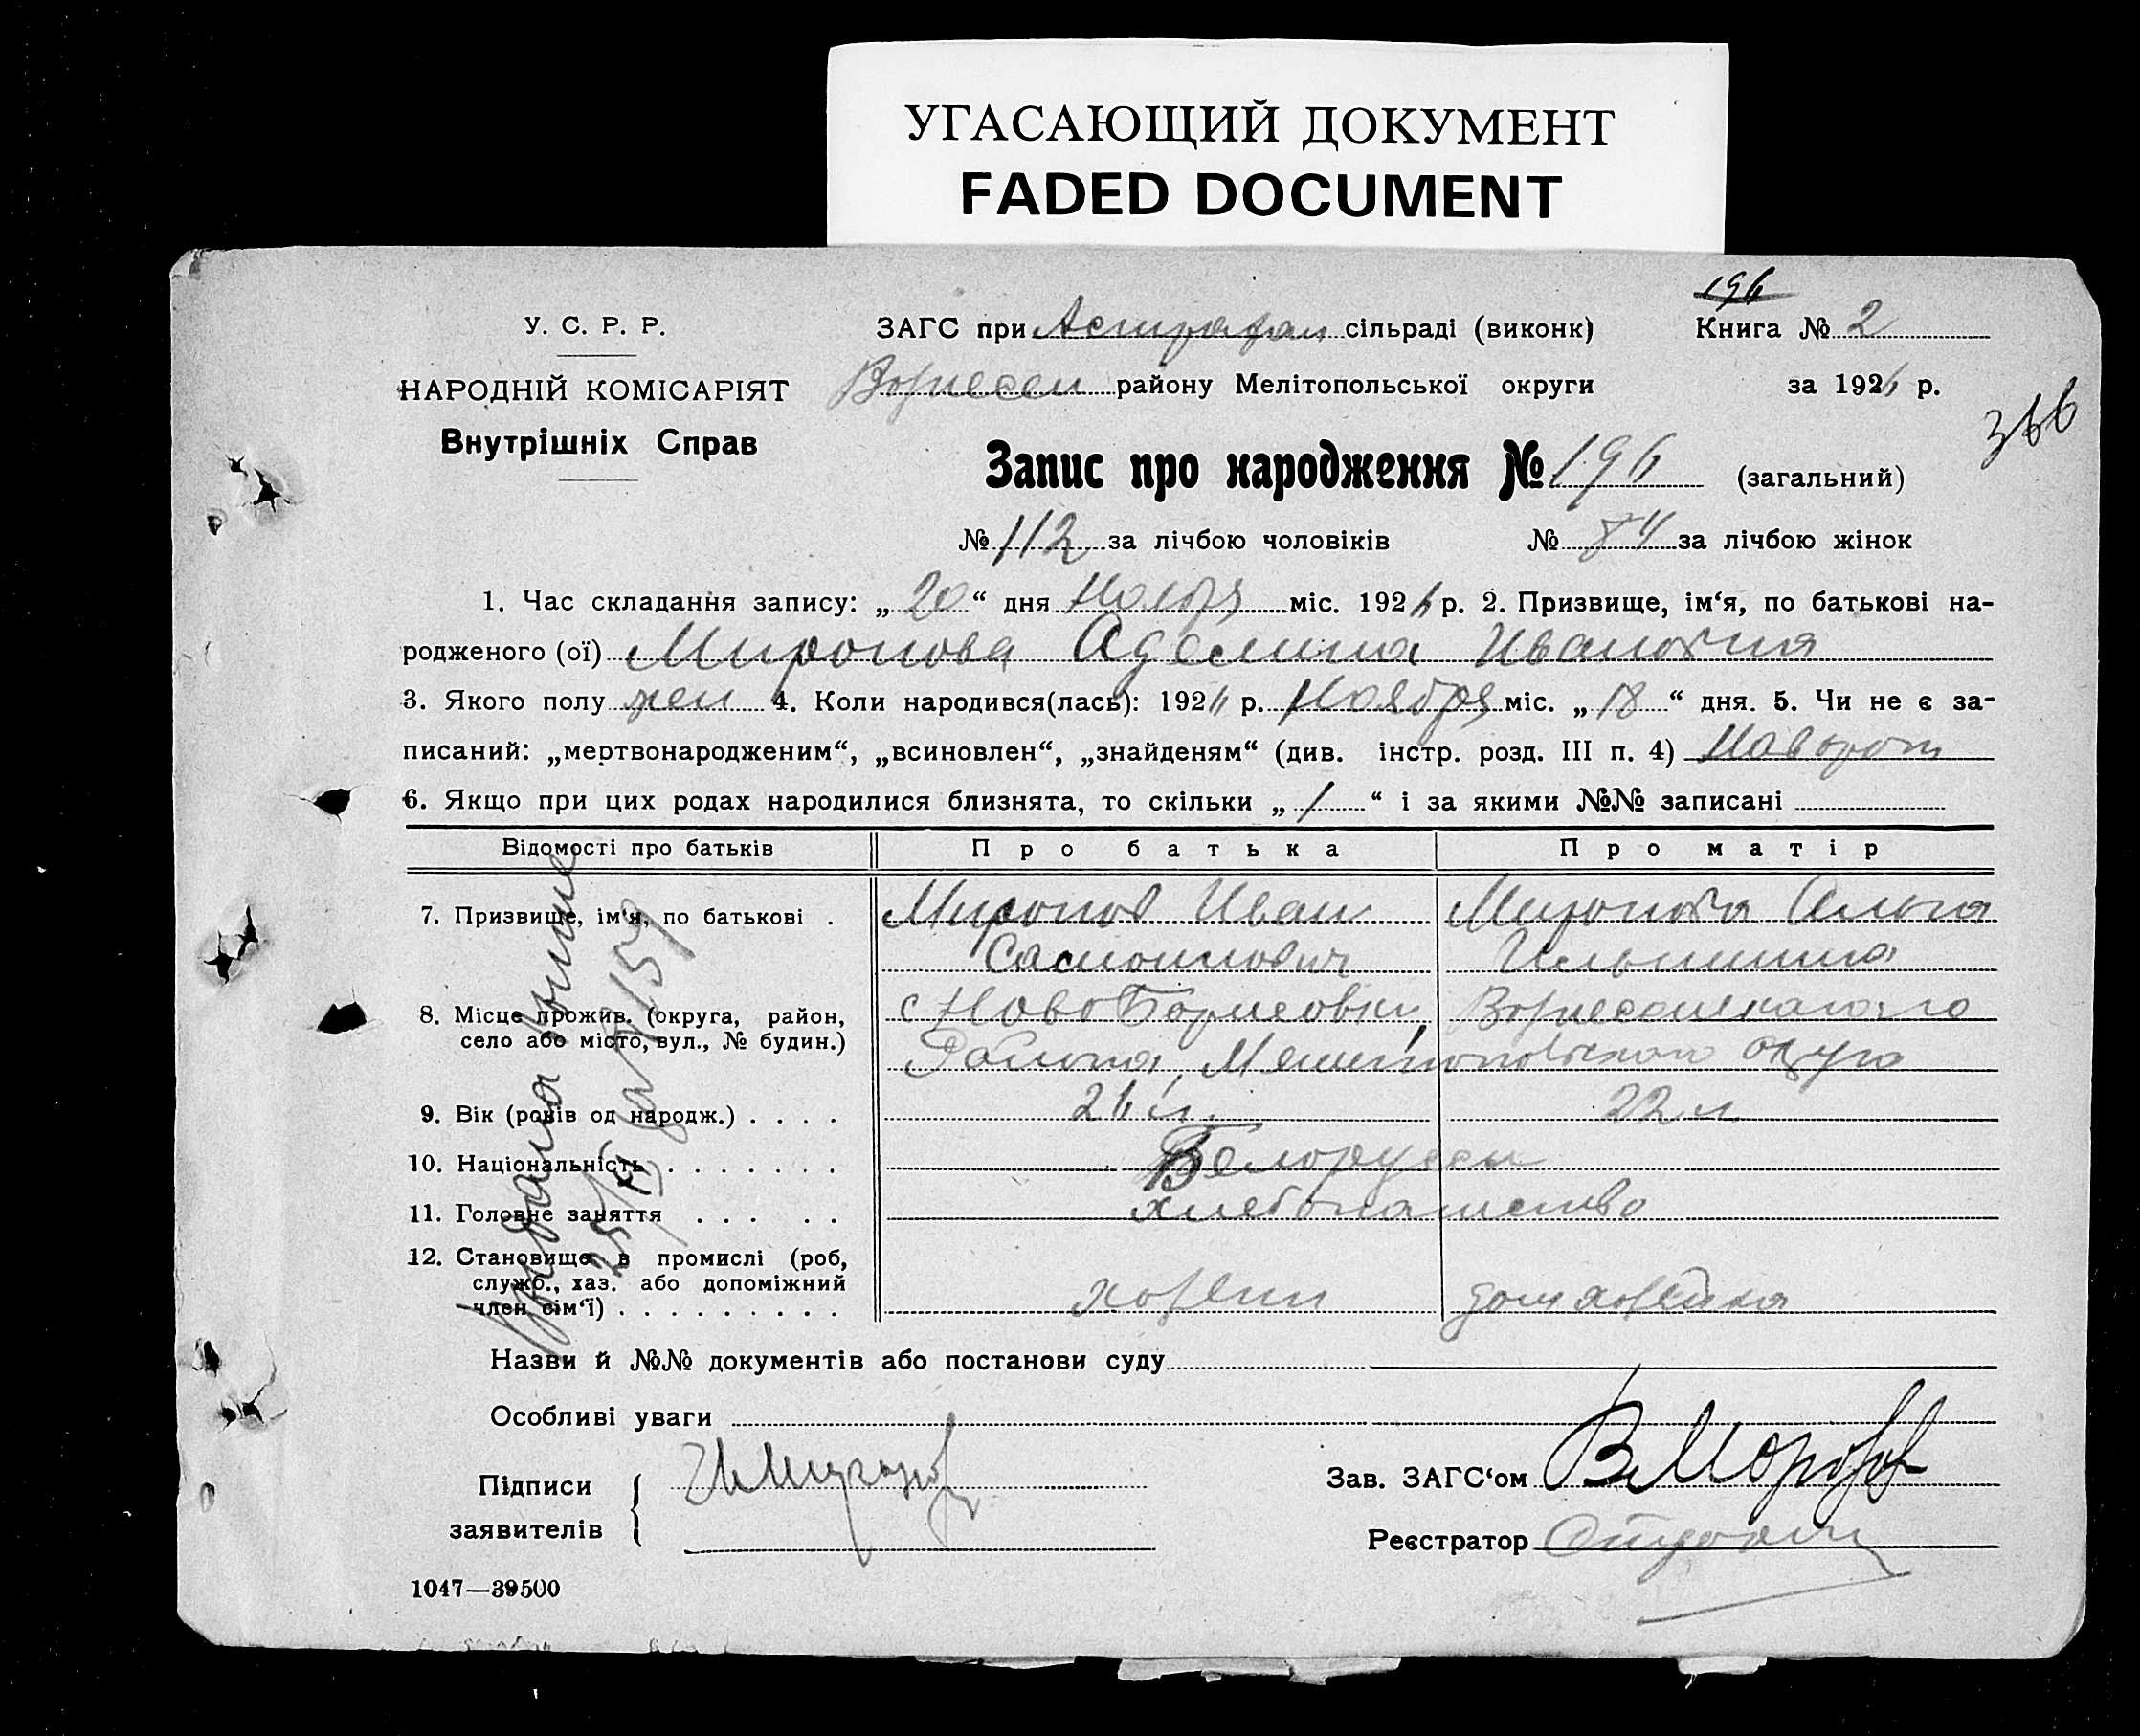 УГАСАЮЩИЙ ДОКУМЕНТ
FADED DOCUMENT
196
У. С. Р. Р.
ЗАГС при Астрахан сільраді (виконк)
Книга № 2
НАРОДНІЙ КОМІСАРІЯТ
Вознесен району Мелітопольської округи
за 1926 р.
Внутрішніх Справ
366
Запис про народження № 196 (загальний)
№ 112 за лічбою чоловіків № 84 за лічбою жінок
1. Час складання запису: „20“ дня Ноября міс. 1926 р. 2. Призвище, ім‘я, по батькові на-
родженого (ої) Миронова Аделина Ивановна
3. Якого полу жен 4. Коли народився(лась): 1926 р. Ноября міс. „18“ дня. 5. Чи не є за-
писаний: „мертвонародженим“, „всиновлен“, „знайденям“ (див. інстр. розд. III п. 4)
6. Якщо при цих родах народилися близнята, то скільки „1“ і за якими №№ записані
Відомості про батьків
Про батька
Про матір
7. Призвище, ім‘я, по батькові .
Миронов Иван
Миронова
Ильинична
8. Місце прожив. (округа, район,
село або місто, вул., № будин.)
с Ново Борисовки, Вознесенскаго
Района, Мелитопольского округа
9. Вік (років од народж.) . . . .
26 л.
22 л
10. Національність . . . . . . .
Белоруссы
11. Головне заняття . . . . .
хлебопашество
12. Становище в промислі (роб,
служб., хаз. або допоміжний
член сім‘ї) . . . . . . . . .
хозяин
домохозяйка
Назви й №№ документів або постанови суду
Особливі уваги
Підписи
заявителів
И Миронов
Зав. ЗАГС‘ом В Морозов
Реєстратор
1047—39500